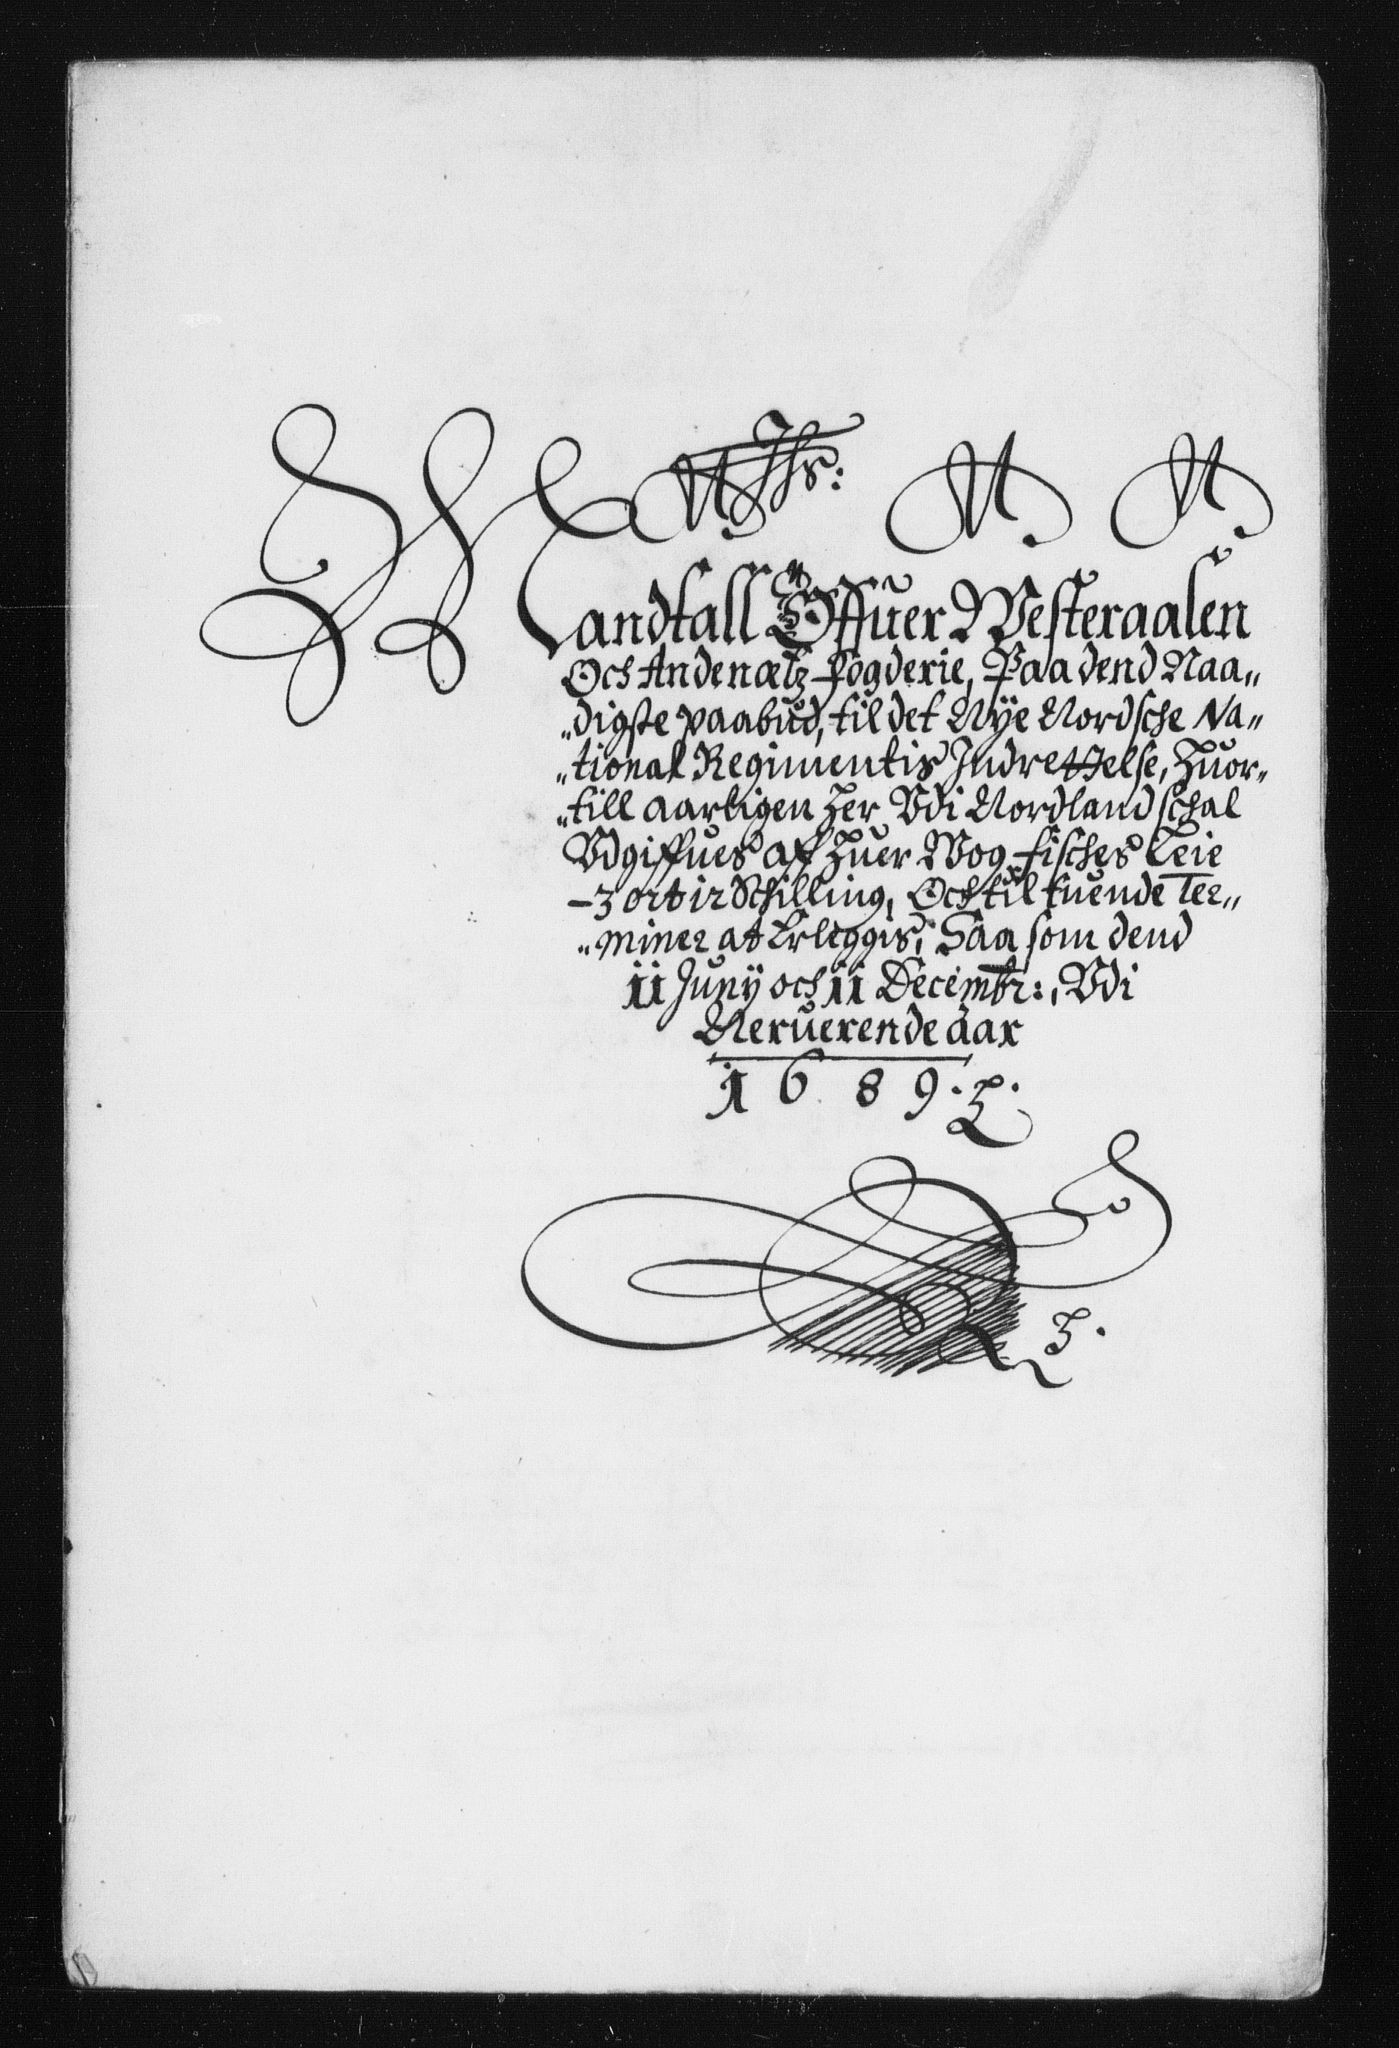 N. Jhs: N. N.
Mandtall Offuer Westeraalen
Och Andenæs Fogderie, Paa dend Naa„
„digste paabud, til det Nye Nordsche Na„
„tional Regimentis Indrettelse, Huor„
„till aarligen Her Vdi Nordland schal
Vdgiffues aff Huer Wog Fisches Leie
3 ort 12 Schilling, Och til tuende Ter„
„miner at Erleggis, Saa som dend
11 Juny och 11 Decembr:, Vdi
Neruerende aar
1689.